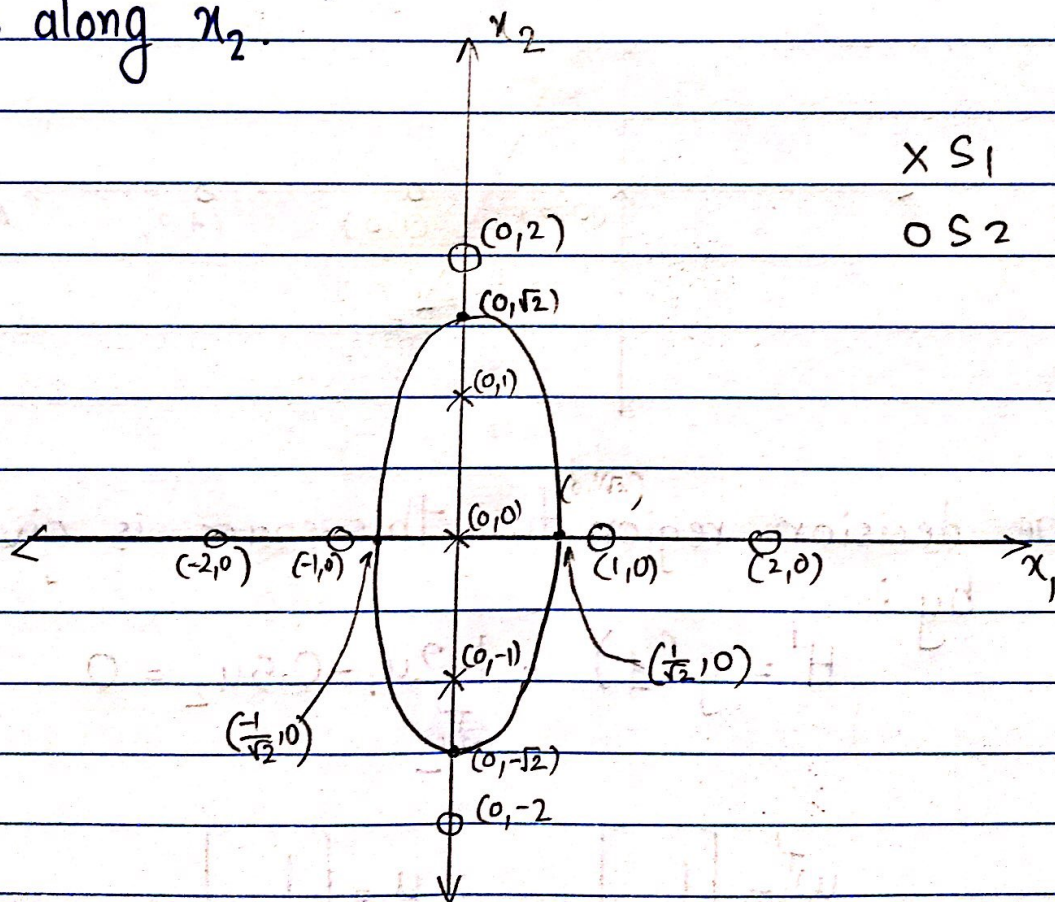 along x₂.
x₂
X S1
O S2
(0,2)
(0,√2)
(0,1)
(0,0)
(-2,0) (-1,0) (1,0) (2,0)
x₁
(0,-1)
(1/√2,0)
(-1/√2,0)
(0,-√2)
(0,-2